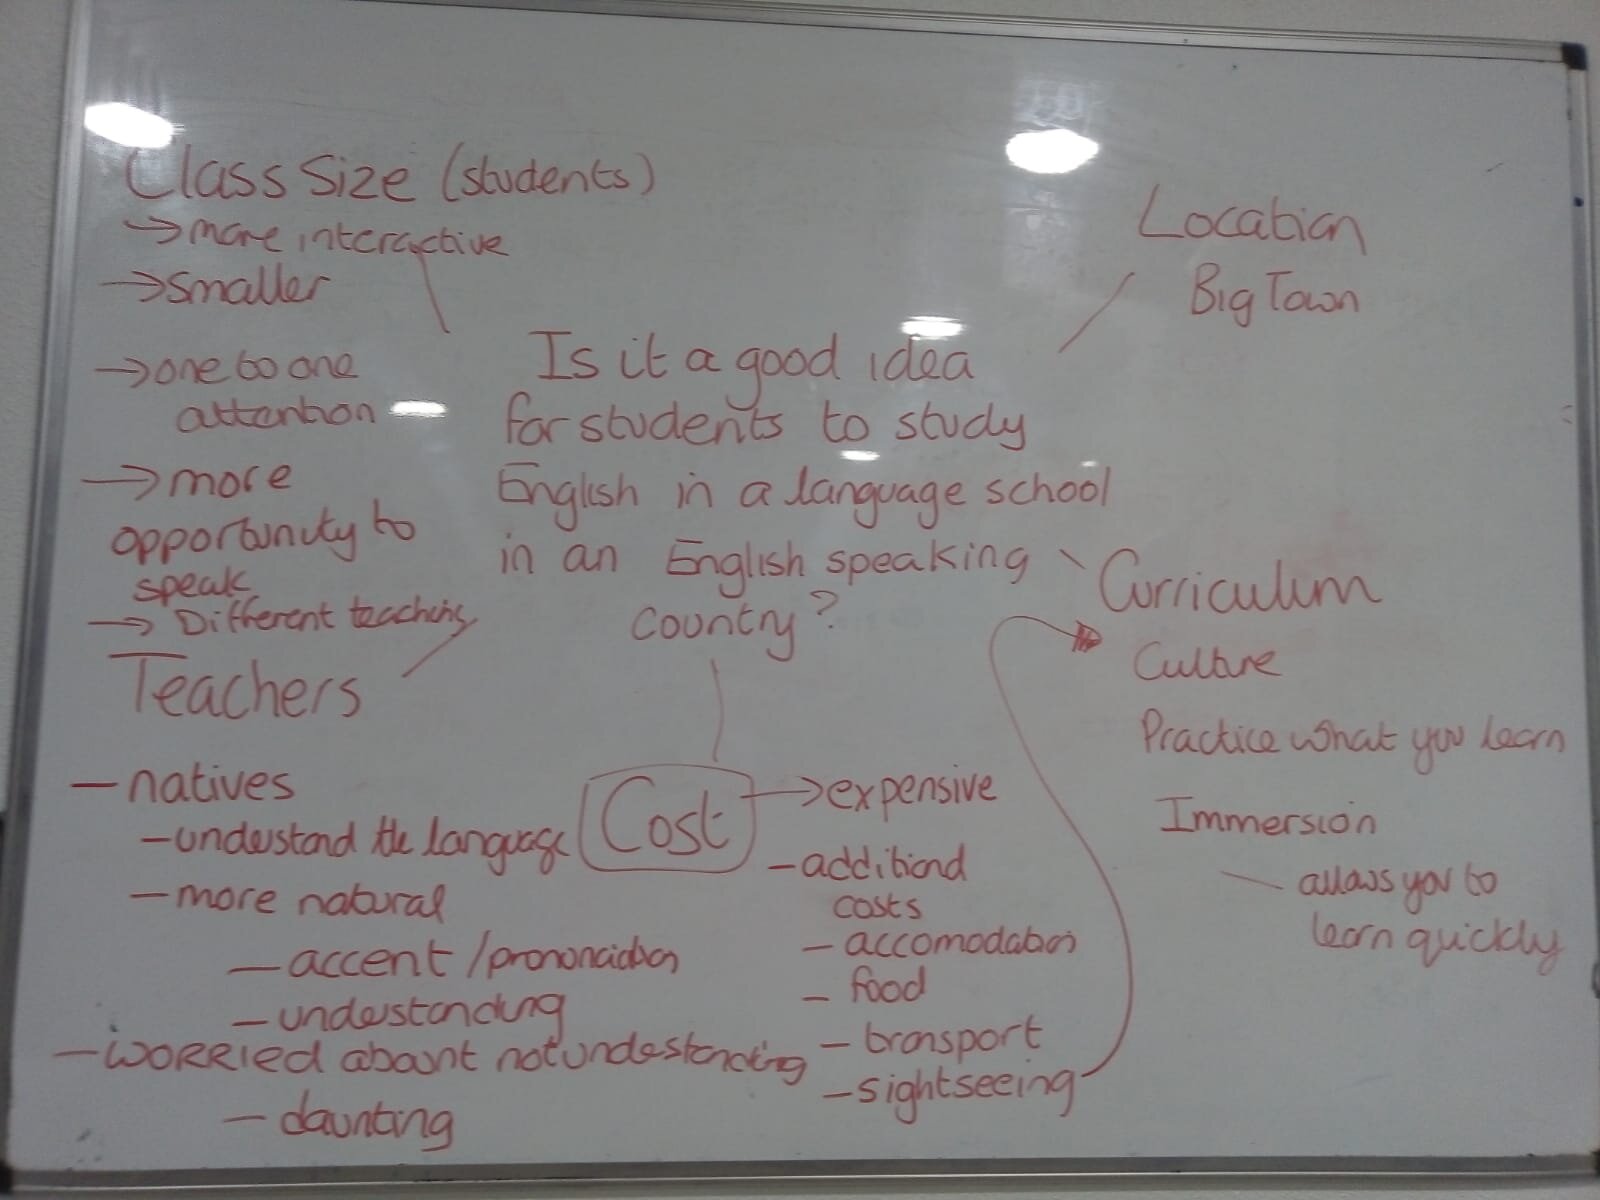 Class Size (students)
→ more interactive
→ smaller
→ one to one
attention
→ more
opportunity to
speak
→ Different teaching
Is it a good idea
for students to study
English in a language school
in an English speaking
country?
Location
Big Town
Curriculum
Culture
Practice what you learn
Immersion
— allows you to
learn quickly
Teachers
— natives
— understand the language
— more natural
— accent / prononciation
— understanding
— WORRIED about not undestanding
— daunting
Cost → expensive
— additional
costs
— accomodation
— food
— transport
— sightseeing